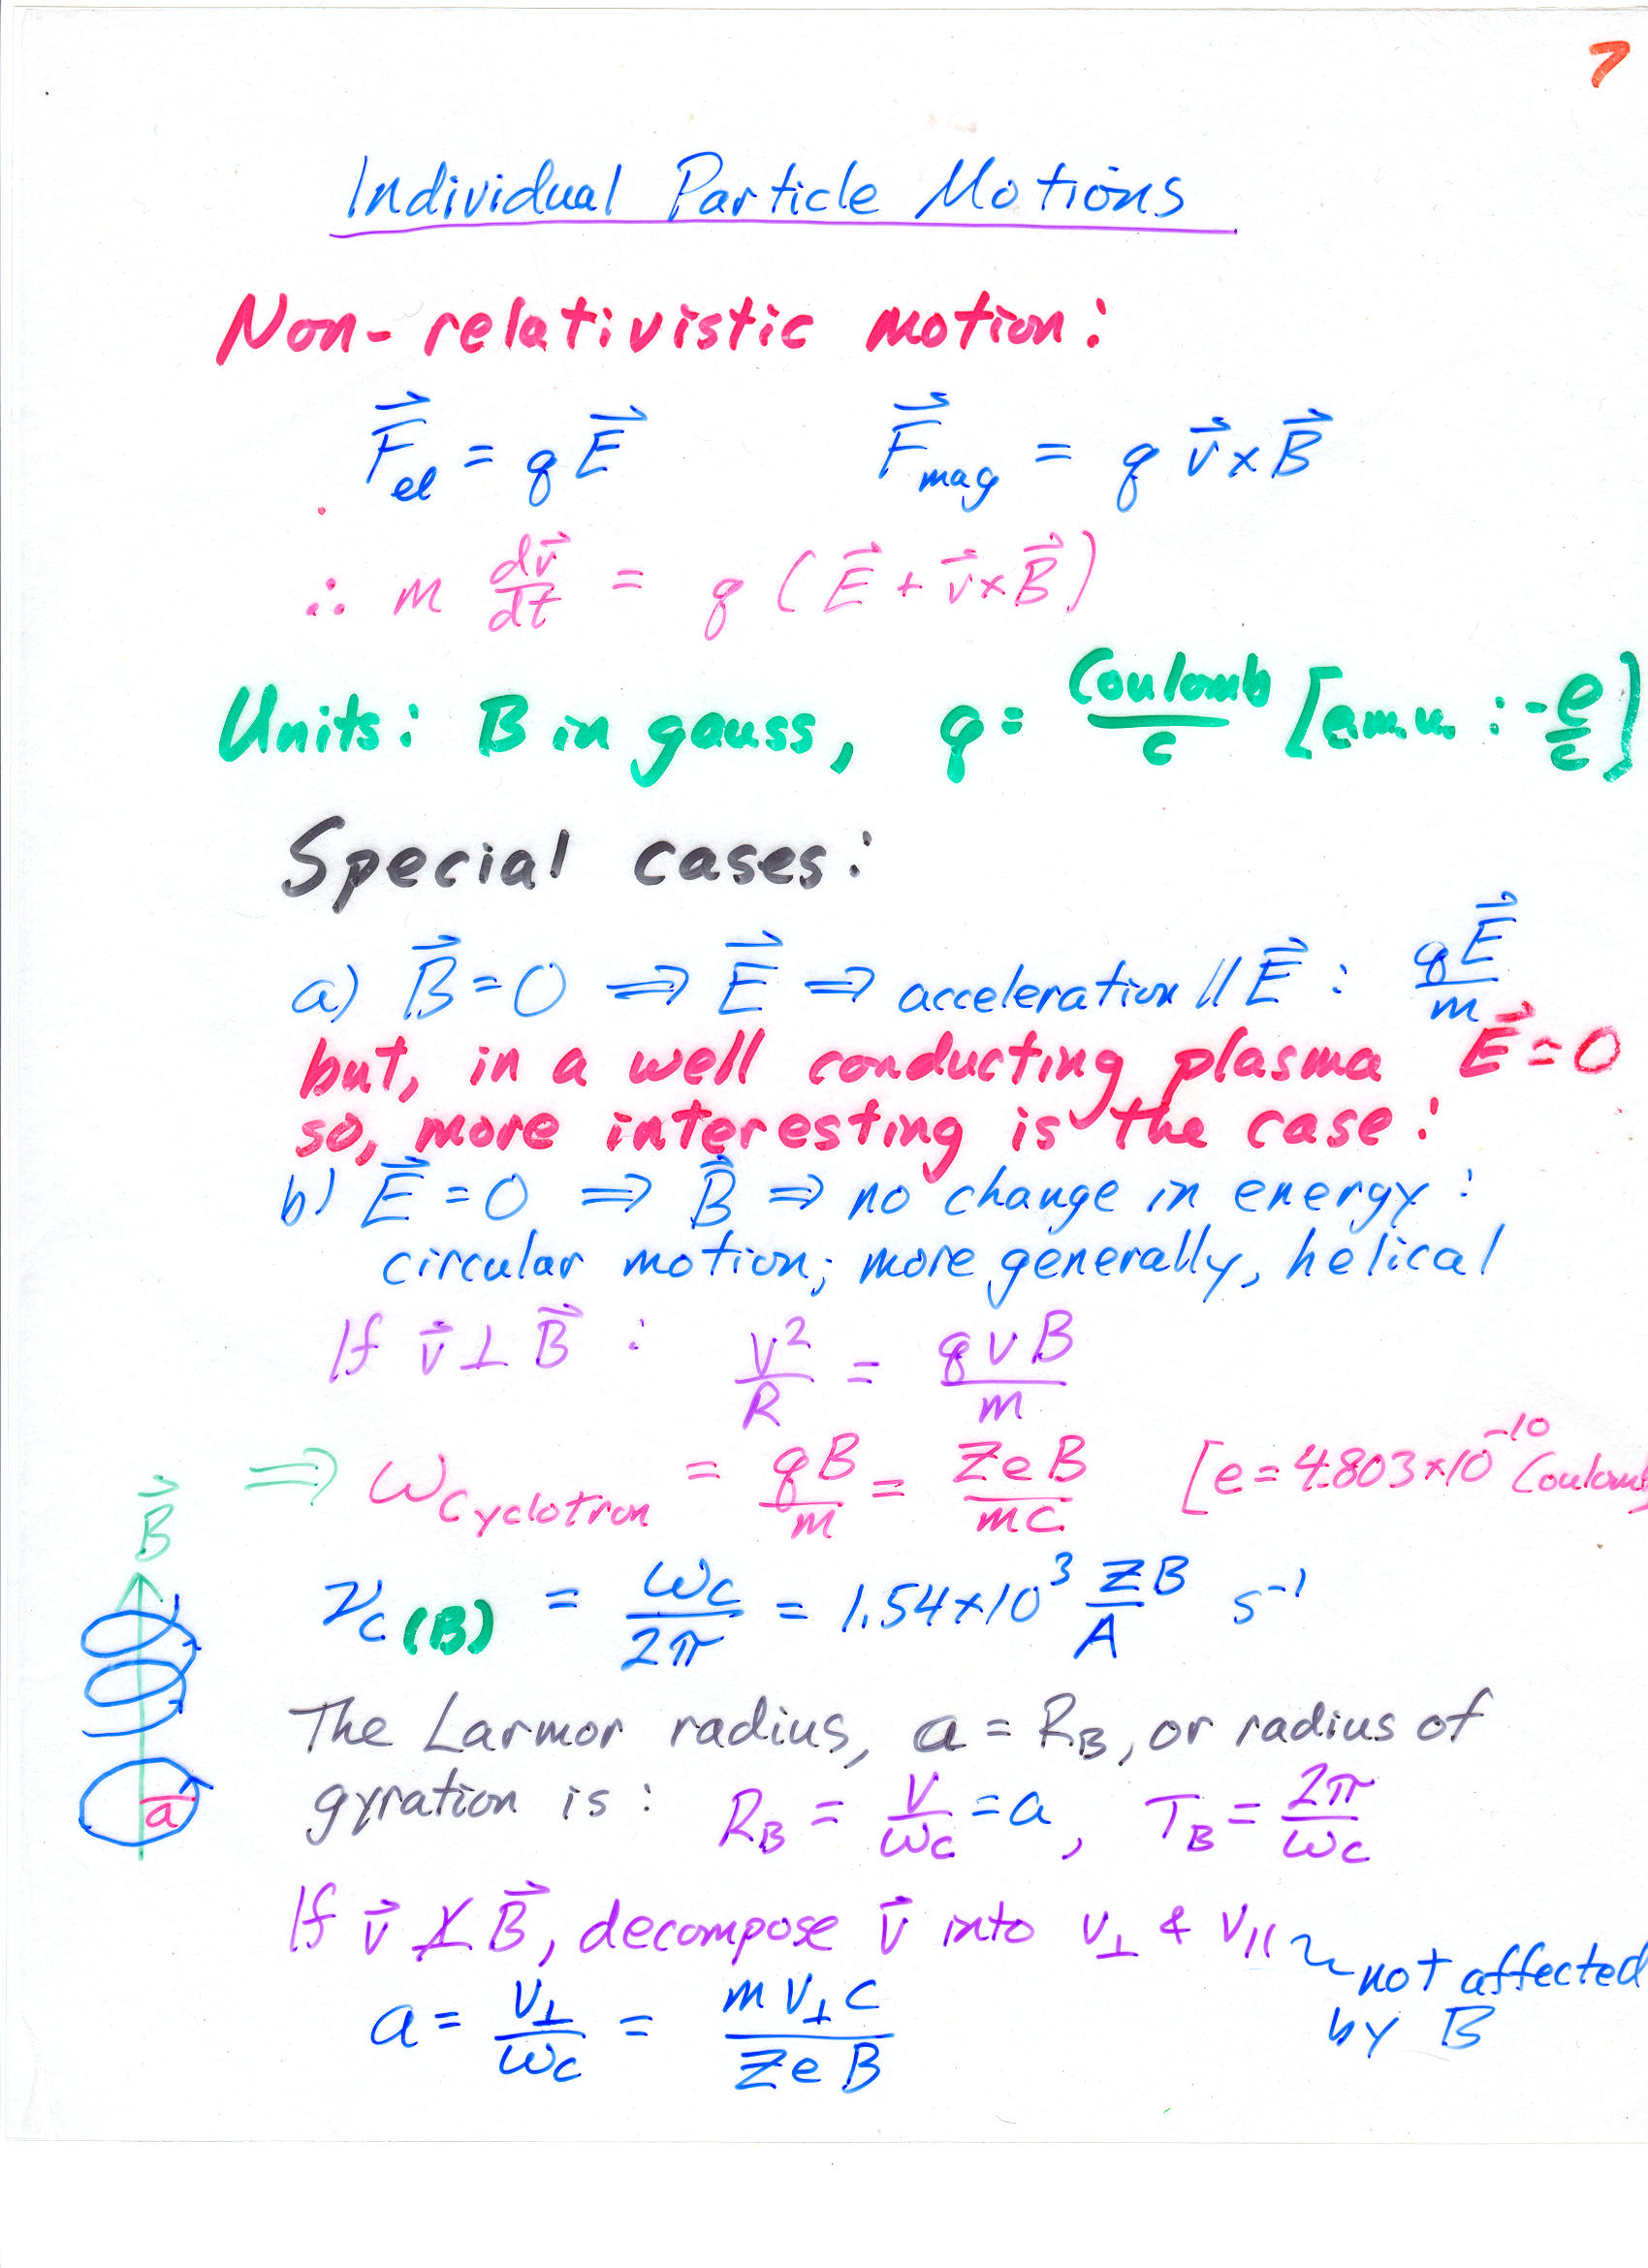 7
Individual Particle Motions
Non-relativistic motion:
F⃗_el = qE⃗    F⃗_mag = q v⃗×B⃗
∴ m dv⃗/dt = q (E⃗ + v⃗×B⃗)
Units: B in gauss, q = Coulomb/c [e.m.u. : -e/c]
Special cases:
a) B⃗=0 ⇒ E⃗ ⇒ acceleration // E⃗ : qE⃗/m
but, in a well conducting plasma E⃗=0
so, more interesting is the case:
b) E⃗=0 ⇒ B⃗ ⇒ no change in energy:
circular motion; more generally, helical
If v⃗⊥B⃗ : v²/R = qvB/m
⇒ ω_cyclotron = qB/m = ZeB/mc [e=4.803×10⁻¹⁰ Coulomb]
B⃗
ν_c(B) = ω_c/2π = 1.54×10³ ZB/A s⁻¹
The Larmor radius, a = R_B, or radius of
gyration is: R_B = v/ω_c = a, T_B = 2π/ω_c
a
If v⃗ ⊥̸ B⃗, decompose v⃗ into v_⊥ & v_||
~ not affected
by B
a = v_⊥/ω_c = m v_⊥ c/ZeB